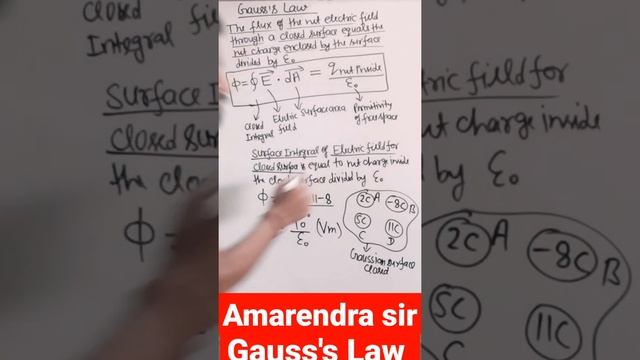 Gauss's Law
The flux of the nut electric field
through a closed surface equals the
nut charge enclosed by the surface
divided by ε₀
Φ = ∮ E⃗ · dA⃗ = q nut inside / ε₀
closed Integral
Electric field
Surface area
Permitivity of free space
Surface Integral of Electric field for
closed surface is equal to nut charge inside
the closed surface divided by ε₀
Φ
11-8
10/ε₀ (Vm)
2C A
-8C B
5C C
11C D
Gaussian surface
closed
closed
Integral field
Surface
closed
the clos
Φ
ctric field for
ut charge inside
by ε₀
2C A
-8C B
5C
11C
Amarendra sir
Gauss's Law